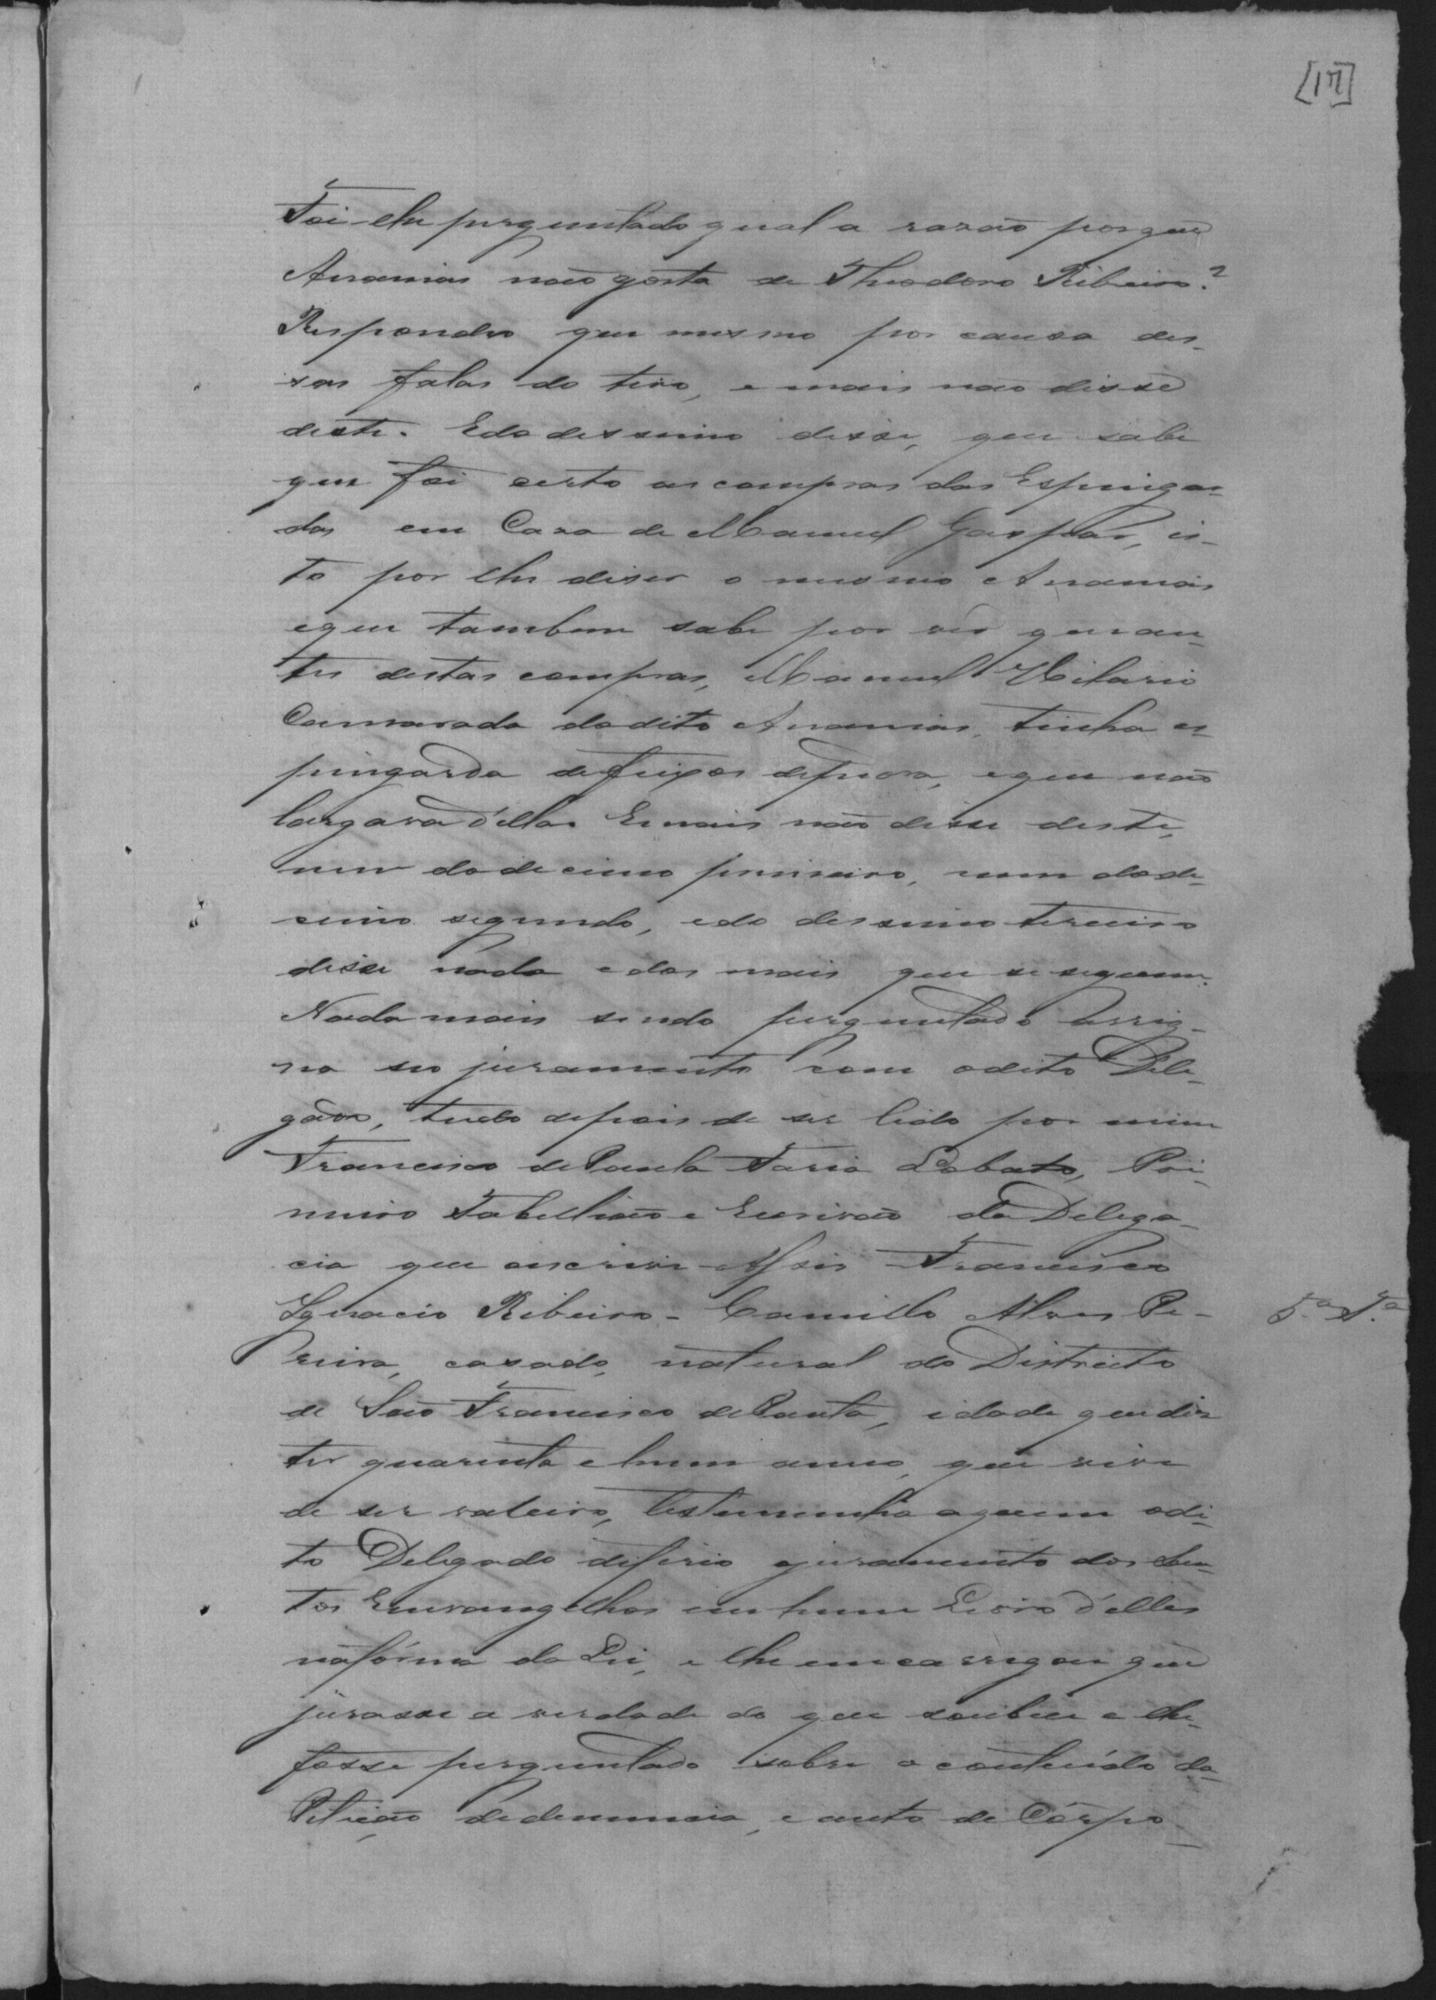 [17]
Foi-lhe perguntado qual a rasão porque
Ananias não gosta de Theodoro Ribeiro?
Respondeo que mesmo por causa des-
sas falas do tiro, e mais não disse
deste. E do dessimo disse, que sabe
que foi certo as compras das Espingar-
das em Casa de Manuel Gaspar, is-
to por lhe diser o mesmo Ananias
e que tambem sabe por ver que an-
tes destas compras, Manuel Hilario
Camarada do dito Ananias, tinha es-
pingarda de feixos de fora, e que não
largava d'ella. E mais não disse deste,
nem do decimo primeiro, nem do de-
cimo segundo, e do dessimo terceiro
disse nada e dos mais que se seguem.
Nada mais sendo perguntado assig-
na seo juramento com o dito Dele-
gado, tudo depois de ser lido por mim
Francisco de Paula Faria Lobato, Pri-
meiro Tabellião e Escrivão da Delega-
cia que escrevi Assis Francisco
Ignacio Ribeiro - Camillo Alves Pe-
5.ª T.ª
reira, casado, natural do Districto
de São Francisco de Paula, idade que diz
ter quarenta e hum anno, que vive
de ser roceiro, testemunha a quem o di-
to Delegado deferio o juramento dos San-
tos Euvangelhos em hum Livro d'elles
na fórma da Lei, e lhe encarregou que
jurasse a verdade do que soubese e lhe
fosse perguntado sobre o contheúdo da
Petição de denuncia, e auto de Corpo